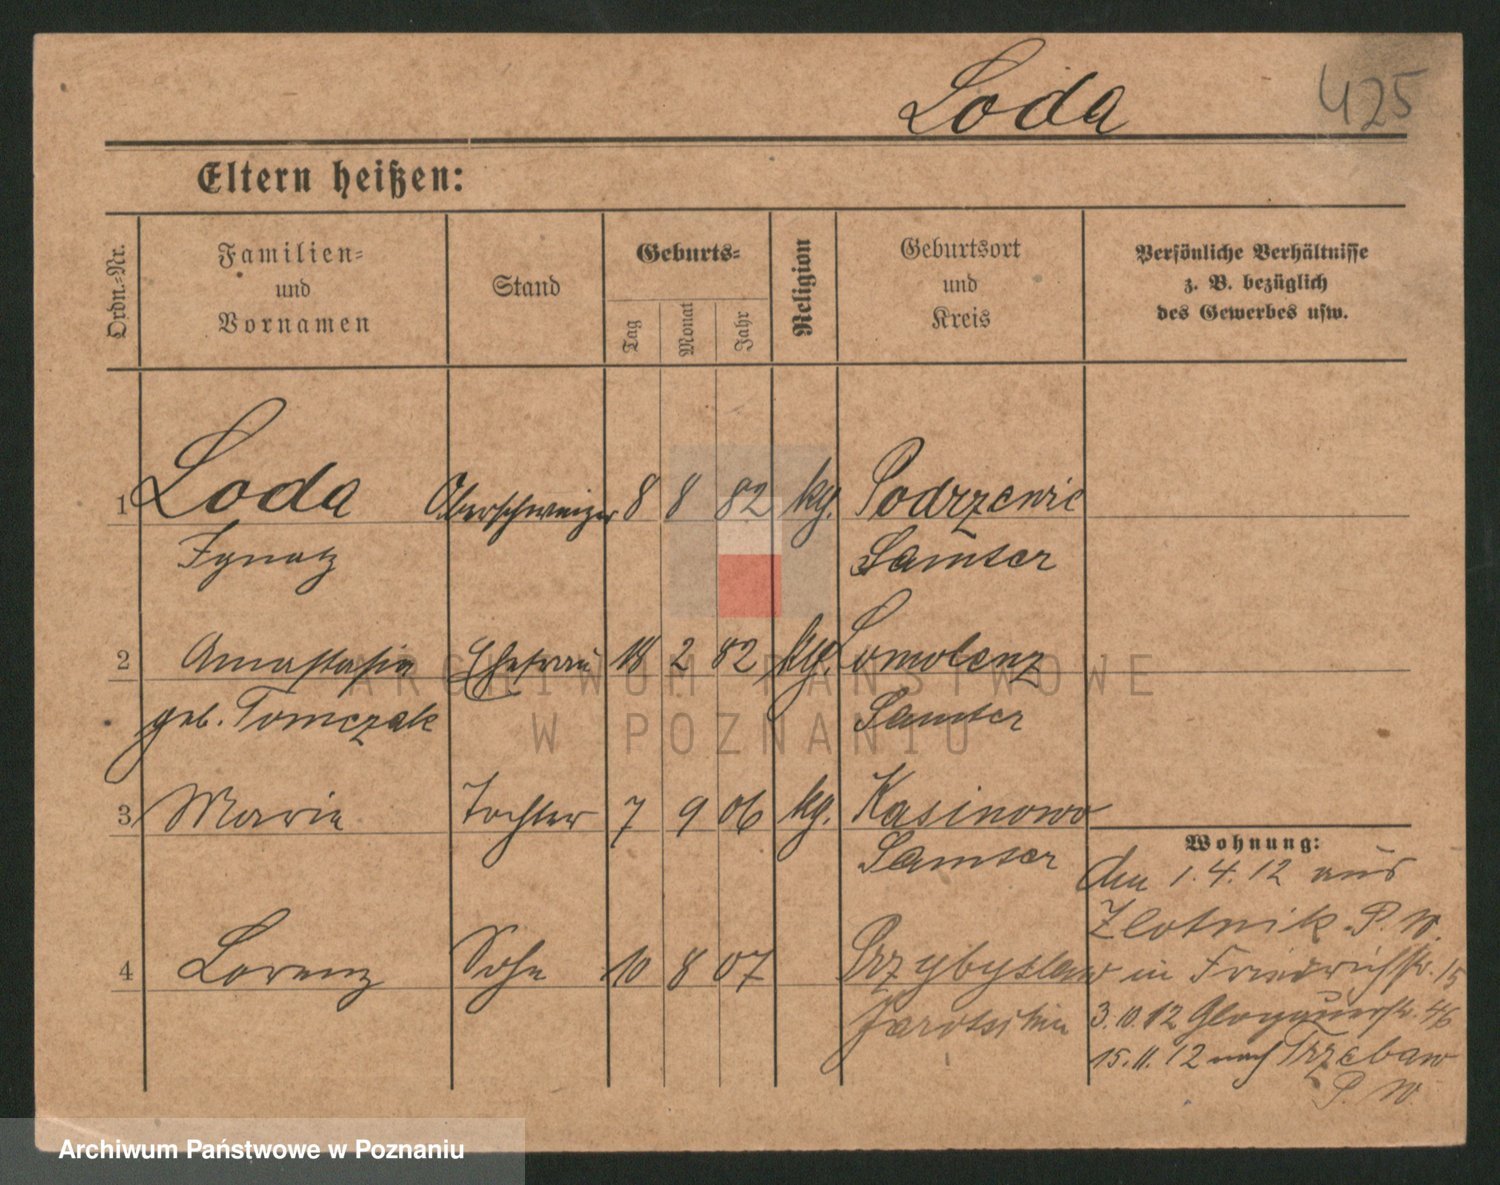 Loda
425
Eltern heißen:
Ordn.-Nr.
Familien-
und
Vornamen
Stand
Geburts-
Tag
Monat
Jahr
Religion
Geburtsort
und
Kreis
Persönliche Verhältnisse
z. B. bezüglich
des Gewerbes usw.
1 Loda Oberschweizer 8 8 82 kg. Podrzewie
Ignatz Samter
2 Anastasia Ehefrau 18 2 82 kg.
geb. Tomczak Samter
3 Marie Tochter 7 9 06 kg. Kasinowo
Samter
Wohnung:
den 1.4.12 aus
Zlotnik P. W.
4 Lorenz Sohn 10 8 07 Przybyslaw in Friedrichstr. 15
Jarotschin 3.10.12 Glogauerstr. 46
15.11.12 nach Trzebaw
P. W.
ARCHIWUM PAŃSTWOWE
W POZNANIU
Archiwum Państwowe w Poznaniu